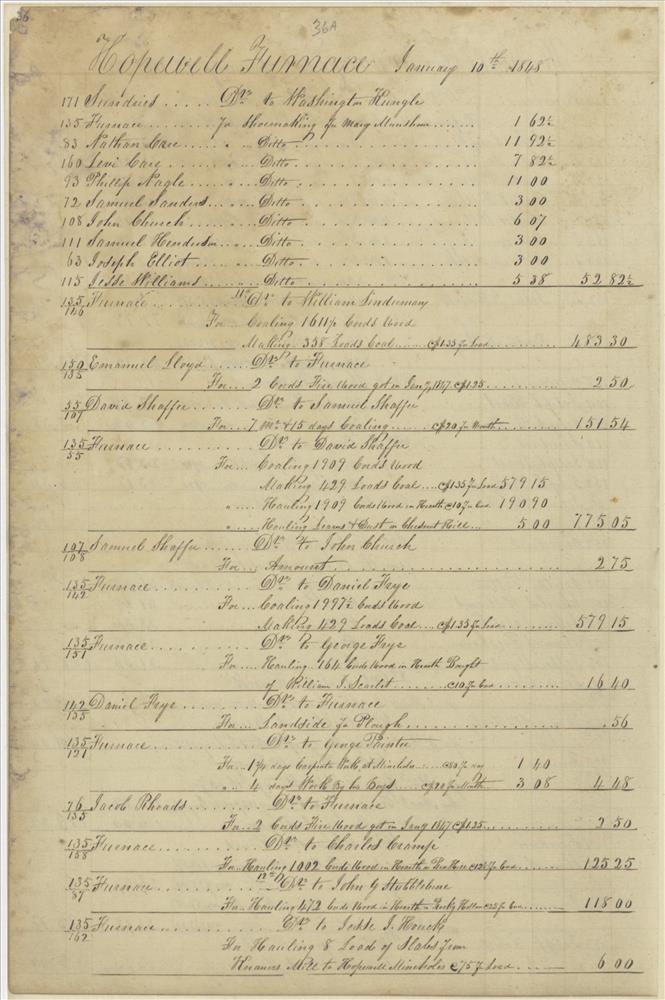 36
36A
Hopewell Furnace January 10th 1848
171 Sundries ..... Drs to Washington Hungle
135 Furnace ..... for Shoemaking for Mary ....... 1 62½
83 Nathan Care ..... " .. Ditto .......... 11 92½
160 Levi Care ..... " .. Ditto .......... 7 82½
93 Phillip Nagle ..... " .. Ditto .......... 11 00
72 Samuel Sanders .... " .. Ditto .......... 3 00
108 John Church ..... " .. Ditto .......... 6 07
111 Samuel Henderson .. " .. Ditto .......... 3 00
63 Joseph Elliot ..... " .. Ditto .......... 3 00
115 Jesse Williams ..... " .. Ditto .......... 5 38 52 82½
135/146 Furnace .......... 11th Dr to William Lindeman
For .. Coaling 1611½ Cords Wood
Making 358 Loads Coal ...... @ $1.35 pr Load ...... 483 30
150/135 Emanuel Lloyd ...... Dr to Furnace
For ... 2 Cords Fire Wood got in Jany 1847 @ $1.25 ...... 2 50
55/107 David Shaffer ...... Dr to Samuel Shaffer
For ... 7 Mo & 15 days Coaling ..... @ $20 pr Month ...... 151 54
135/55 Furnace .......... Dr to David Shaffer
For ... Coaling 1909 Cords Wood
Making 429 Loads Coal .... @ $1.35 pr Load 579 15
" .... Hauling 1909 Cords Wood in Hearth @ 10 pr Cord 190 90
" .... Hauling Leaves & Dust in Chesnut Hill ... 5 00 775 05
107/108 Samuel Shaffer ...... Dr to John Church
For ... Amount .................... 2 75
135/142 Furnace .......... Dr to Daniel Frye
For ... Coaling 1997½ Cords Wood
Making 429 Loads Coal .... @ $1.35 pr Load ...... 579 15
135/151 Furnace .......... Dr to George Frye
For .... Hauling 164 Cords Wood in Hearth Bought
of William J. Scarlet ....... @ 10 pr Cord ........ 16 40
142/135 Daniel Frye ...... Dr to Furnace
For ... Landside for Plough ............ .56
135/121 Furnace .......... Dr to George Painter
For .. 1¾ days Carpenter Work at Mineholes ..... @ 80 pr day 1 40
" .. 4 days Work By his Boys .... @ $20 pr Month 3 08 4 48
76/135 Jacob Rhoads ...... Dr to Furnace
For .. 2 Cords Fire Wood got in Jany 1847 @ $1.25 ........ 2 50
135/158 Furnace .......... Dr to Charles Cramp
For Hauling 1002 Cords Wood in Hearth @ 12½ pr Cord ...... 125 25
135/87 Furnace .......... 12th Dr to John G Stubblebine
For Hauling 472 Cords Wood in Hearth in Rocky Hollow @ 25 pr Cord ...... 118 00
135/162 Furnace .......... Dr to Jesse J. Houck
For Hauling 8 Loads of Slates from
Knauers Mill to Hopewell Mineholes @ 75 pr Load ...... 6 00